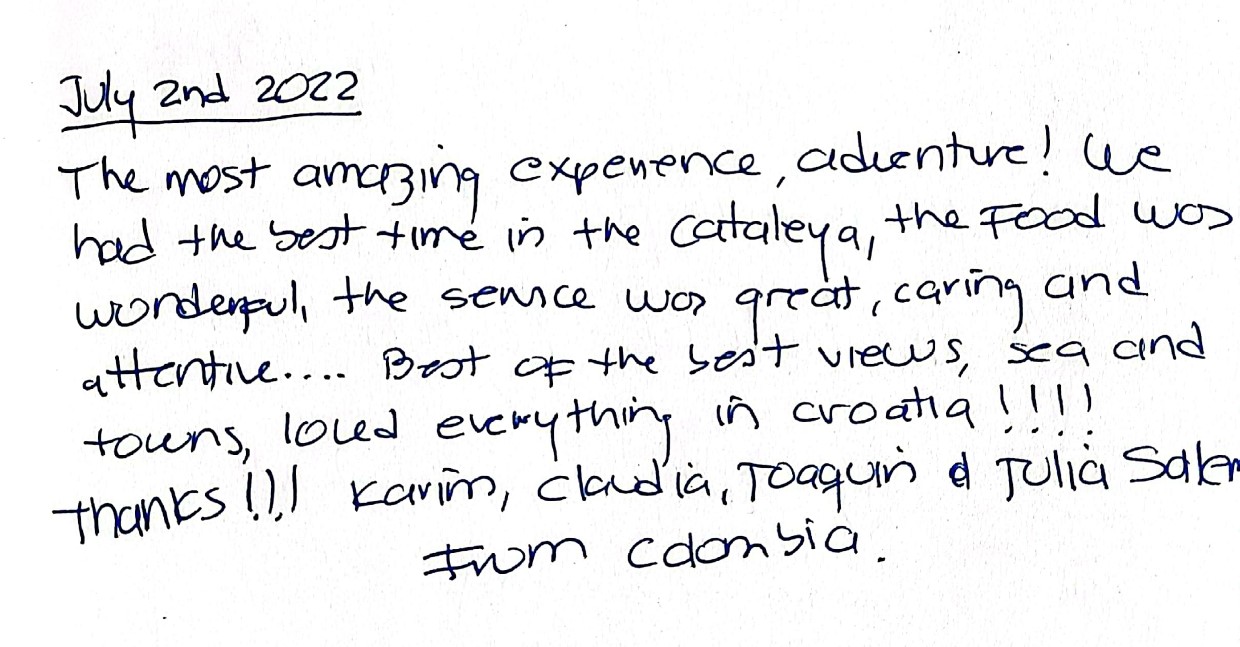 July 2nd 2022
The most amazing experience, adventure! We
had the best time in the Cataleya, the Food was
wonderful, the service was great, caring and
attentive.... Best of the best views, sea and
towns, loved everything in croatia !!!!
thanks!!! Karim, Claudia, Joaquin & Julia
From Colombia.